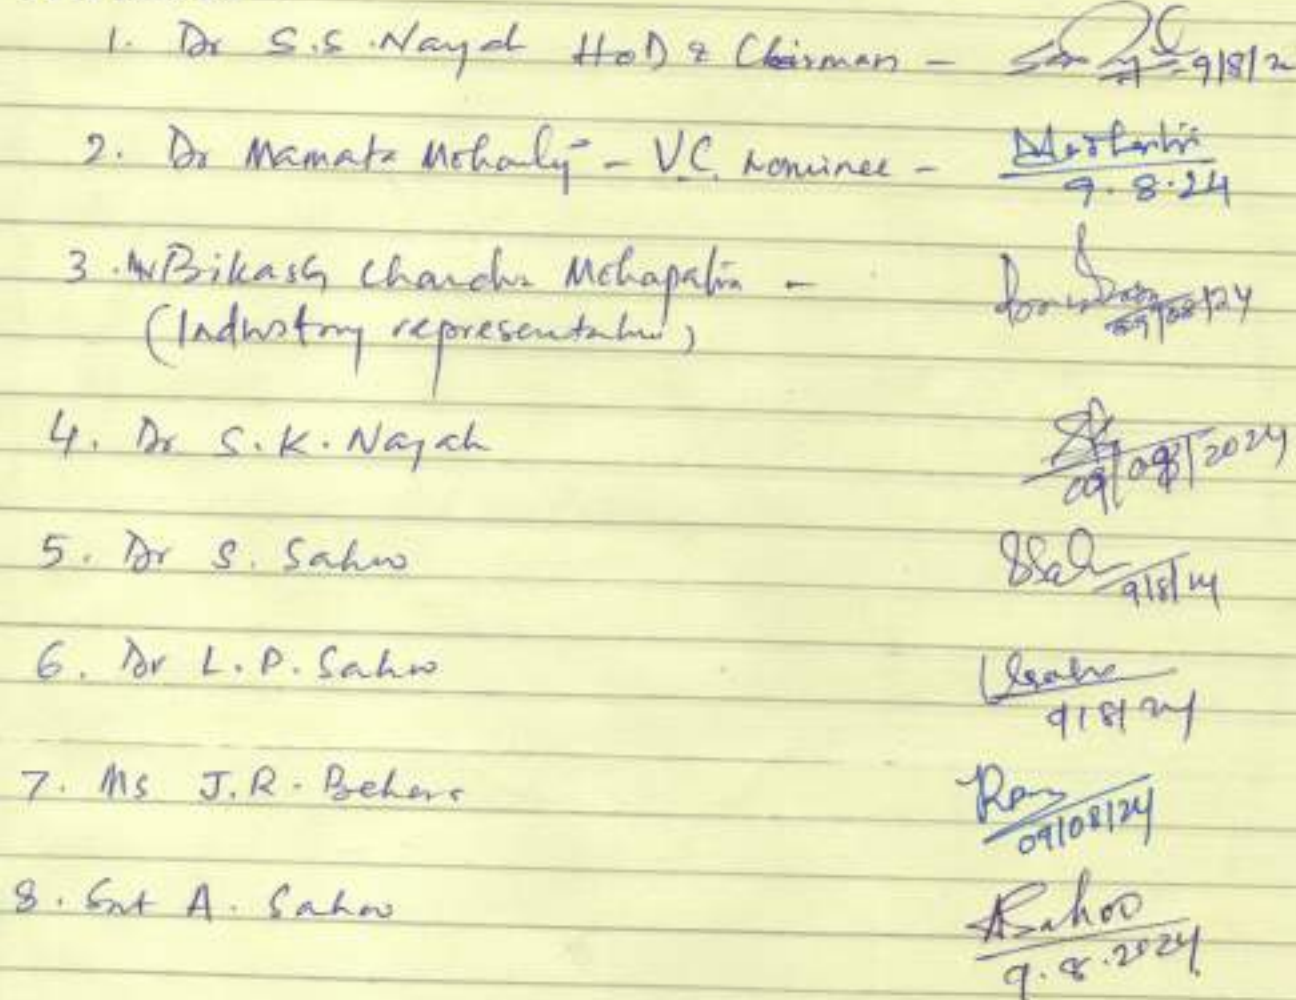 1. Dr S.S. Nayak HoD & Chairman - 9/8/2
2. Dr Mamata Mohanty - V.C. nominee - 
9.8.24
3. Mr Bikash Chandra Mohapatra - 
09/08/24
(Industry representative)
4. Dr S.K. Nayak
09/08/2024
5. Dr S. Sahoo
9/8/24
6. Dr L.P. Sahoo
9/8/24
7. Ms J.R. Behera
09/08/24
8. Smt A. Sahoo ASahoo
9.8.2024